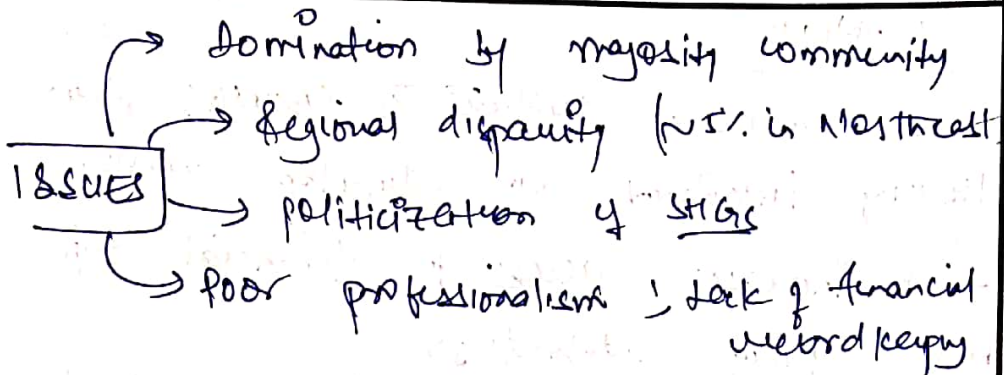 Domination by majority community
Regional disparity (~5% in Northeast
ISSUES
politicization of SHGs
Poor professionalism ; Lack of financial
record keeping